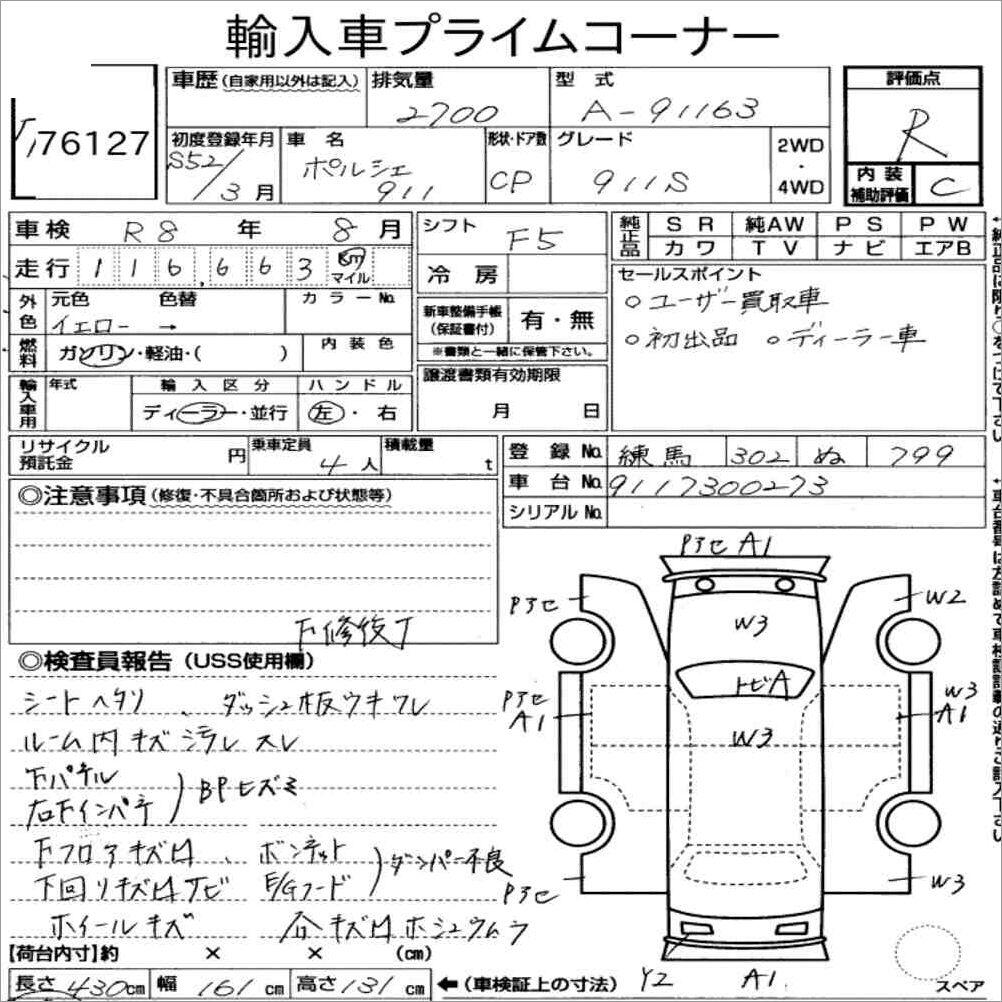 輸入車プライムコーナー
76127
車歴(自家用以外は記入)
排気量
2700
型 式
A-91163
評価点
R
初度登録年月
S52/3月
車 名
ポルシェ
911
形状・ドア数
CP
グレード
911S
2WD
・
4WD
内 装
補助評価
C
車検 R8 年 8 月
走行 116,663 km マイル
シフト
F5
冷 房
純正品
SR 純AW PS PW
カワ TV ナビ エアB
セールスポイント
○ユーザー買取車
○初出品 ○ディーラー車
外色
元色 色替
イエロー →
カラーNo.
燃料
ガソリン・軽油・( )
内 装 色
新車整備手帳
(保証書付)
有・無
※書類と一緒に保管下さい。
輸入車用
年式
輸 入 区 分
ディーラー・並行
ハ ン ド ル
左・右
譲渡書類有効期限
月 日
リサイクル
預託金
円
乗車定員
4人
積載量
t
登 録 No. 練馬 302 ぬ 799
車 台 No. 9117300273
シリアルNo.
◎注意事項(修復・不具合箇所および状態等)
下修復了
◎検査員報告(USS使用欄)
シートヘタリ、ダッシュ板ウキワレ
ルーム内キズ汚レスレ
下パネル
右下インパネ
BPヒズミ
下フロアキズ凹、ボンネット
下回りキズ凹サビ E/Gフード
ダンパー不良
ホイールキズ
各キズ凹ホシュウムラ
【荷台内寸】約 × × (cm)
長さ 430 cm 幅 161 cm 高さ 131 cm ←(車検証上の寸法)
Pアセ A1
Pアセ
W2
W3
トビA
Pアセ
A1
W3
A1
W3
Pアセ
W3
Y2
A1
スペア